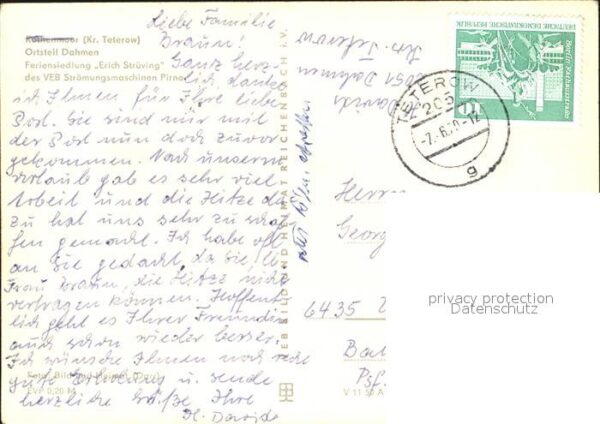 Rothenmoor (Kr. Teterow)
Ortsteil Dahmen
Feriensiedlung „Erich Strüving"
des VEB Strömungsmaschinen Pirna
Liebe Familie
Braun!
Ganz herz-
lich danke
ich Ihnen für Ihre liebe
Post. Sie sind mir mit
der Post nun doch zuvor
gekommen. Nach unserem
Urlaub gab es sehr viel
Arbeit und die Hitze da
zu hat uns sehr zu schaf
fen gemacht. Ich habe oft
an Sie gedacht, da Sie, lb.
Frau Braun, die Hitze nicht
vertragen können. Hoffent
lich geht es Ihrer Freundin
auch schon wieder besser.
Ich wünsche Ihnen noch recht
gute Erholung u. sende
herzliche Grüße Ihre
H. Davids
Foto: Bild und Heimat
EVP 0,20 M
VEB BILD UND HEIMAT REICHENBACH I. V.
V 11 50 A
Davids
2051 Dahmen
Kr. Teterow
DEUTSCHE DEMOKRATISCHE REPUBLIK
10
TETEROW
-7.-6.
-12
g
Herrn
Georg
6435
Psf.
privacy protection
Datenschutz